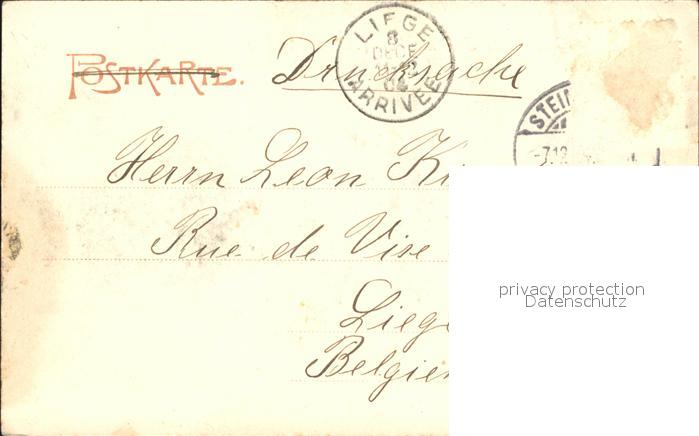 POSTKARTE.
Drucksache
LIEGE
8
DECE
04
ARRIVEE
STEIN
-7.12
Herrn Leon
Rue de Vise
Liege
Belgien
privacy protection
Datenschutz